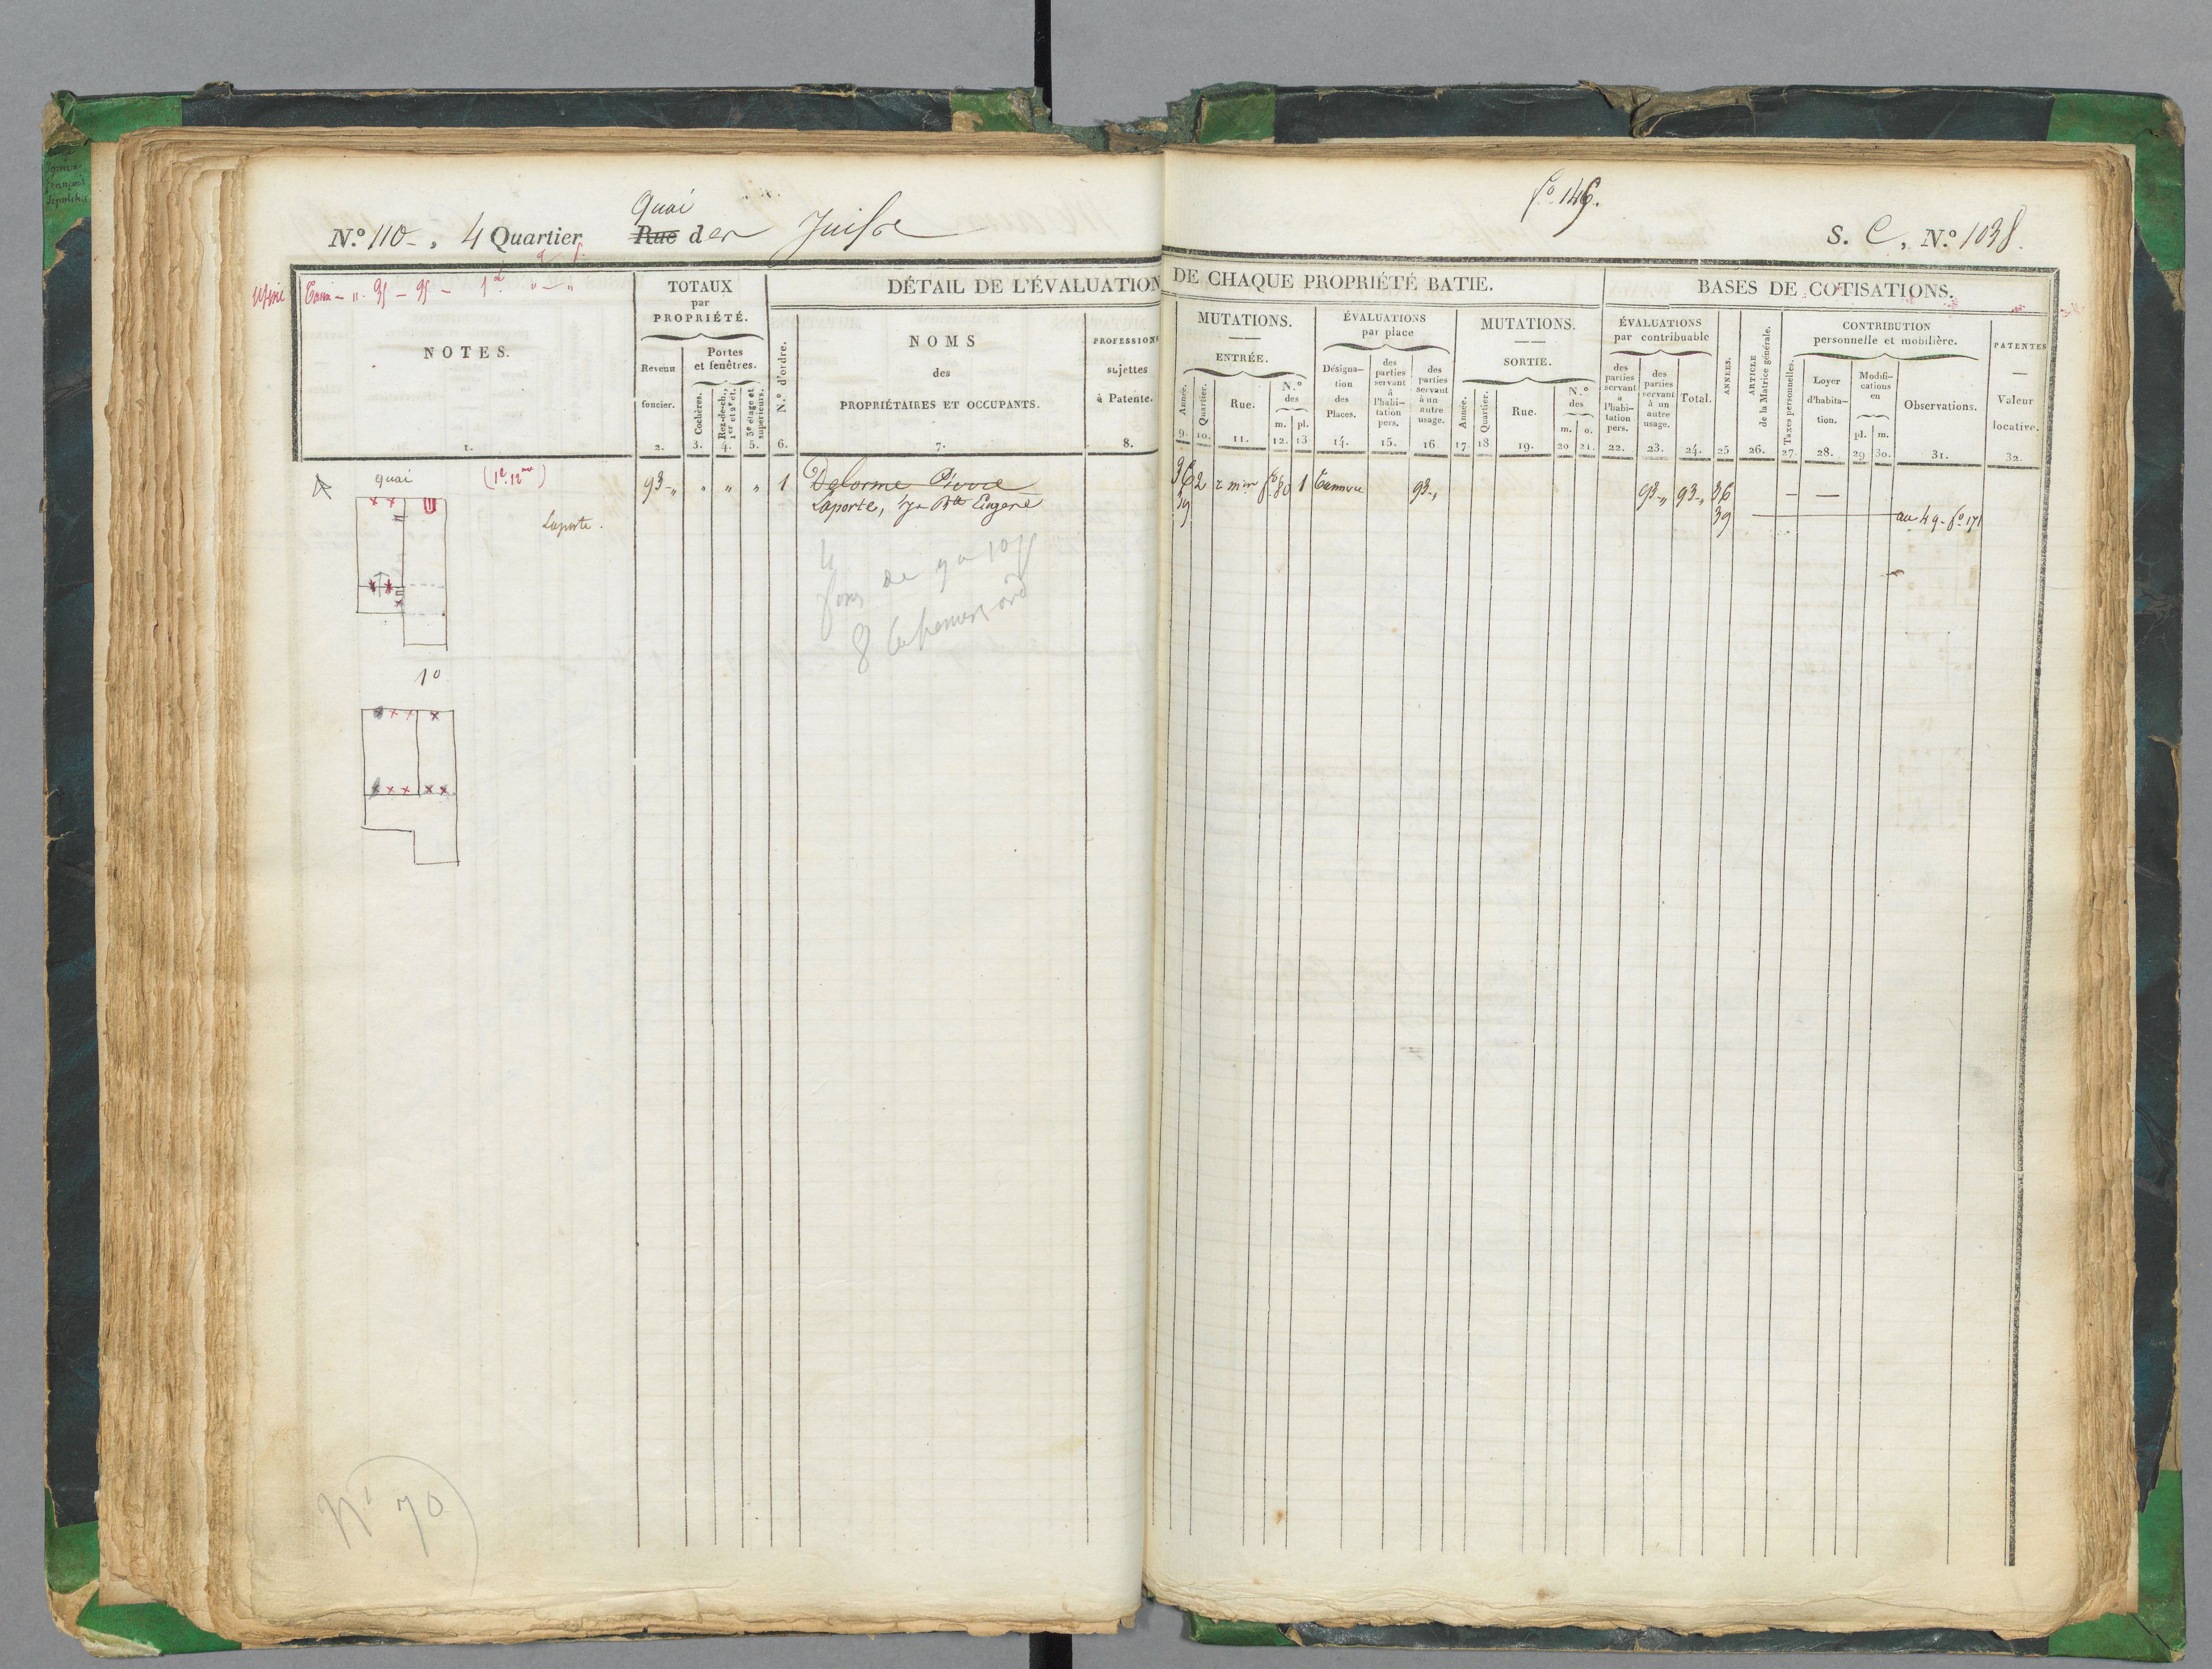 Quai
N.º 110 , 4 Quartier Rue des Juifs
fº 146.
S. C, N.º 1038.
Usine
NOTES.
1.
TOTAUX
par
PROPRIÉTÉ.
Revenu
foncier.
2.
Portes
et fenêtres.
Cochères.
3.
Rez-de-ch.,
1er et 2e ét.
4.
3e étage et
supérieurs.
5.
DÉTAIL DE L'ÉVALUATION DE CHAQUE PROPRIÉTÉ BATIE.
N.º d'ordre.
6.
NOMS
des
PROPRIÉTAIRES ET OCCUPANTS.
7.
PROFESSIONS
sujettes
à Patente.
8.
MUTATIONS.
ENTRÉE.
Année.
9.
Quartier.
10.
Rue.
11.
N.º
des
m. pl.
12. 13
ÉVALUATIONS
par place
Désigna-
tion
des
Places.
14.
des
parties
servant
à
l'habi-
tation
pers.
15.
des
parties
servant
à un
autre
usage.
16.
MUTATIONS.
SORTIE.
Année.
17.
Quartier.
18
Rue.
19.
N.º
des
m. o.
20 21.
BASES DE COTISATIONS.
ÉVALUATIONS
par contribuable
des
parties
servant
à
l'habi-
tation
pers.
22.
des
parties
servant
à un
autre
usage.
23.
Total.
24.
ANNÉES.
25
ARTICLE
de la Matrice générale.
26.
CONTRIBUTION
personnelle et mobilière.
Taxes personnelles.
27.
Loyer
d'habita-
tion.
28.
Modifi-
cations
en
pl. m.
29 30.
Observations.
31.
PATENTES
Valeur
locative.
32.
quai
Laporte.
1º
93 " " " " 1 Delorme Pierre
36 2 fº 80 1 Tannerie 93 "
93 " 93 " 36
Laporte, Eugene
39
39
au 49 - fº 171
Nº 70